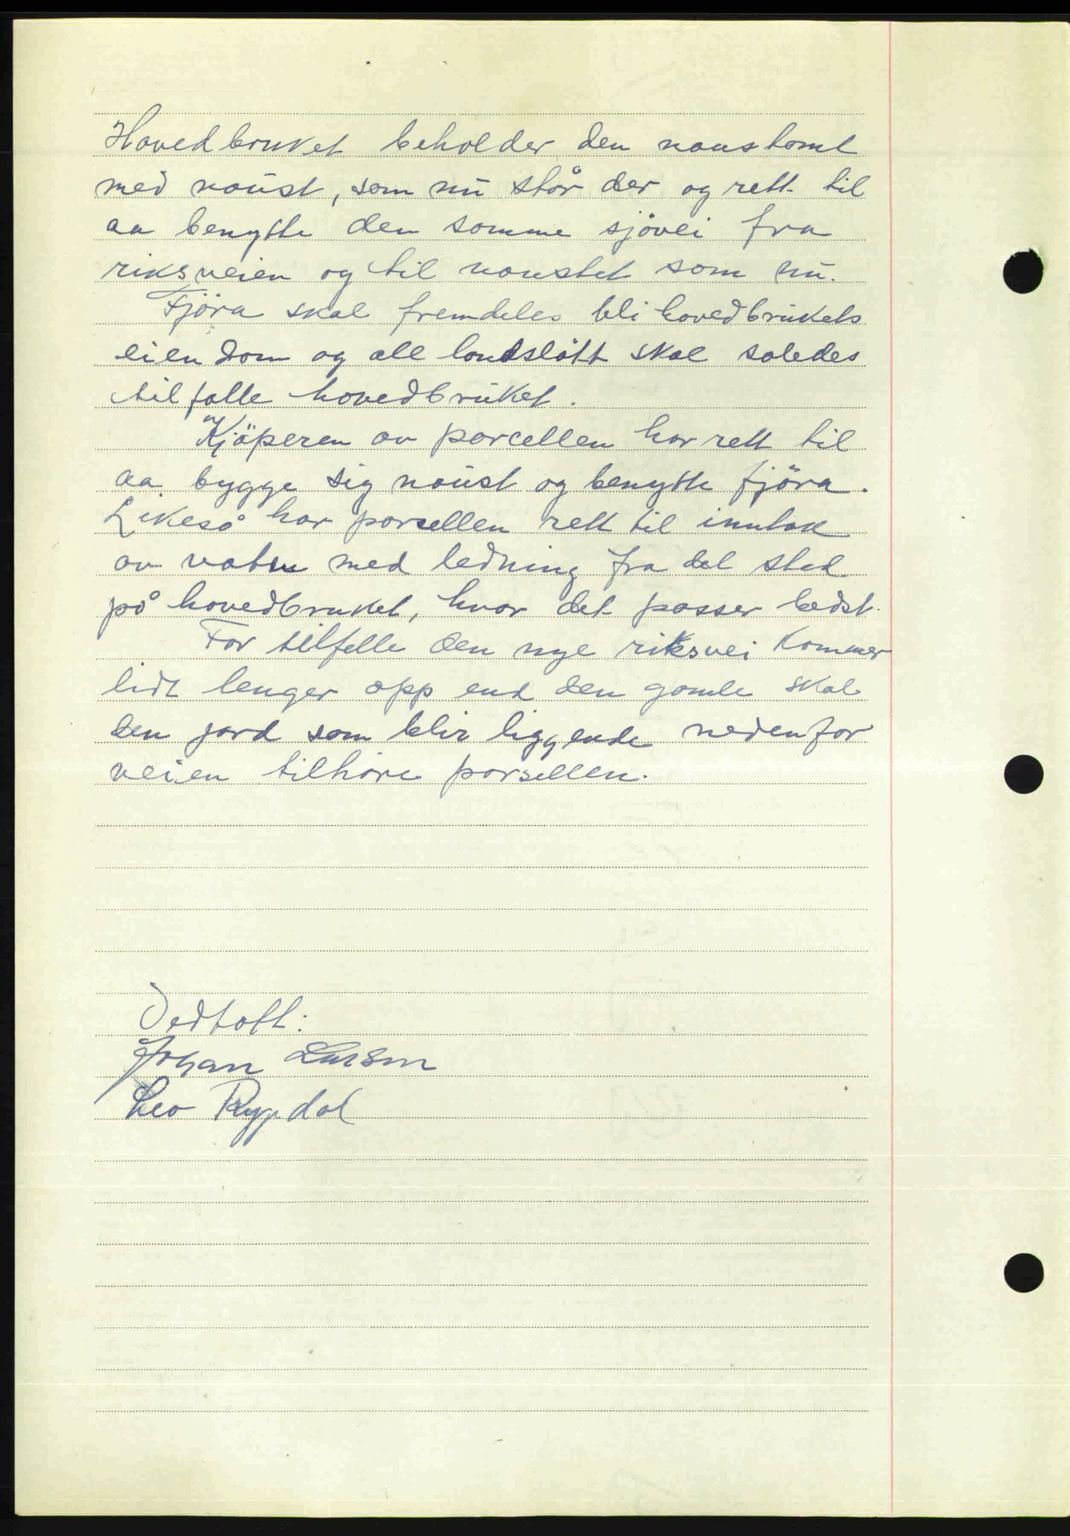 Hovedbruket beholder den naustomt
med naust, som nu står der og rett til
aa benytte den samme sjövei fra
riksveien og til naustet som nu.
Fjöra skal fremdeles bli hovedbrukets
eiendom og all landslått skal således
tilfalle hovedbruket.
Kjöperen av parcellen har rett til
aa bygge sig naust og benytte fjöra.
Likeså har parsellen rett til inntak
av vatn med ledning fra det sted
på hovedbruket, hvor det passer bedst.
For tilfelle den nye riksvei kommer
lidt lenger opp end den gamle skal
den jord som blir liggende nedenfor
veien tilhöre parsellen.
Vedtatt:
Johan Larsen
Leo Rypdal